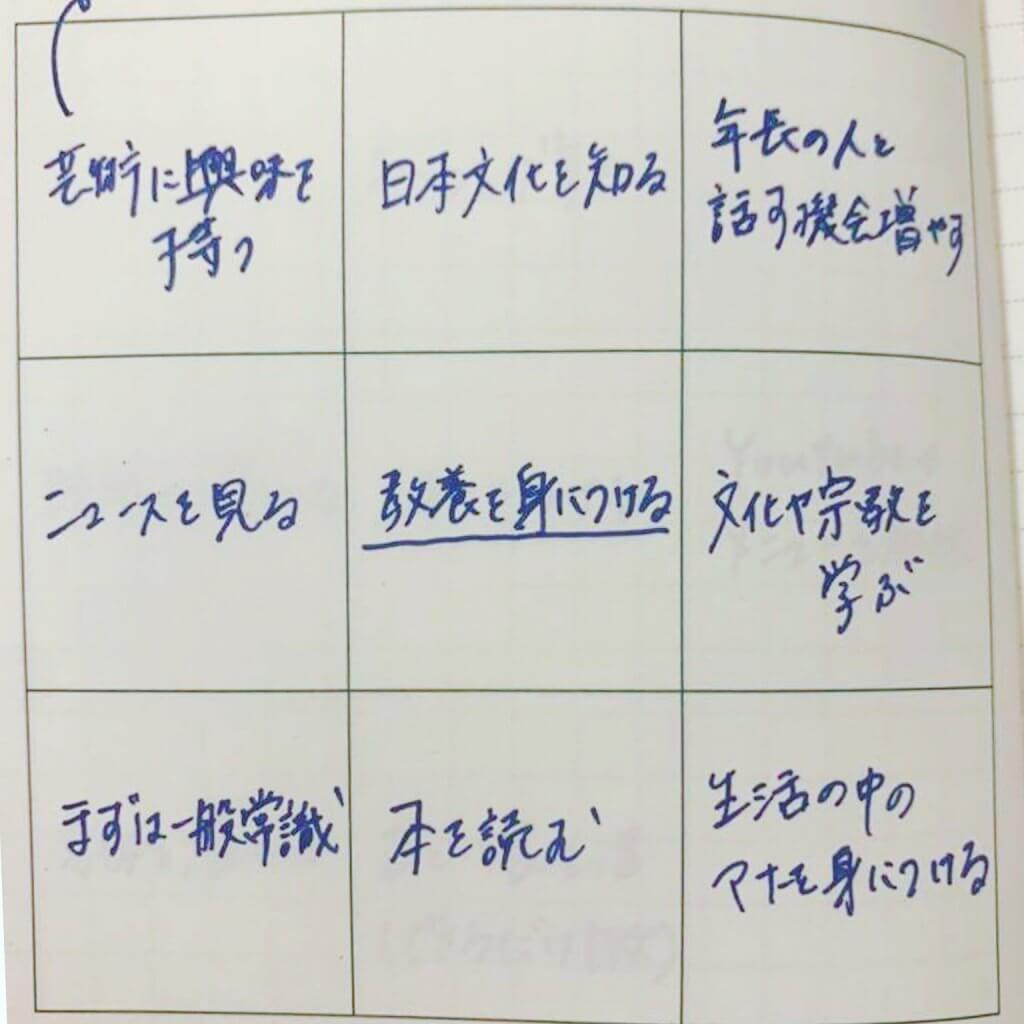 芸術に興味を
持つ
日本文化を知る
年長の人と
話す機会増やす
ニュースを見る
教養を身につける
文化や宗教を
学ぶ
まずは一般常識
本を読む
生活の中の
マナーを身につける